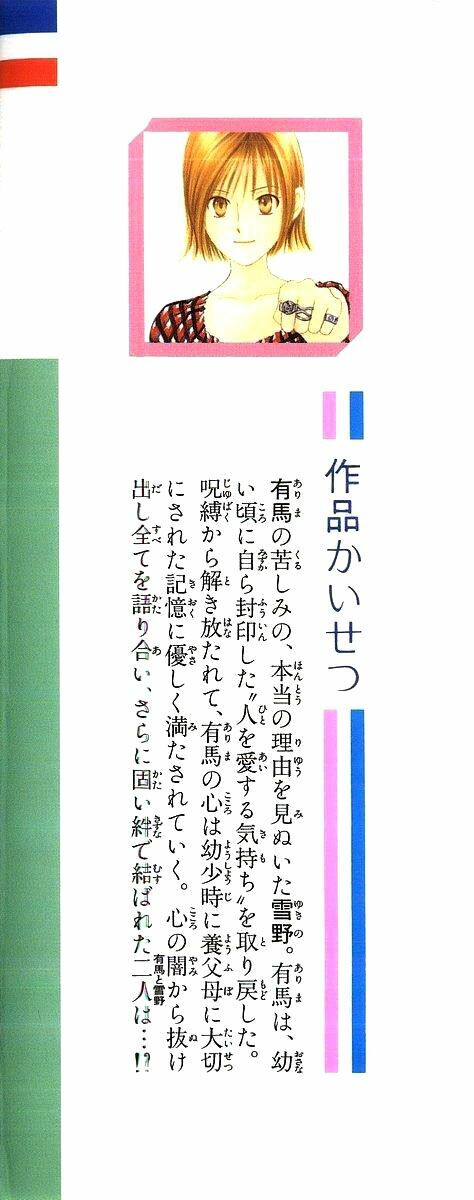 作品かいせつ
有馬の苦しみの、本当の理由を見ぬいた雪野。有馬は、幼
い頃に自ら封印した〝人を愛する気持ち〟を取り戻した。
呪縛から解き放たれて、有馬の心は幼少時に養父母に大切
にされた記憶に優しく満たされていく。心の闇から抜け
出し全てを語り合い、さらに固い絆で結ばれた二人は…!?
有馬と雪野